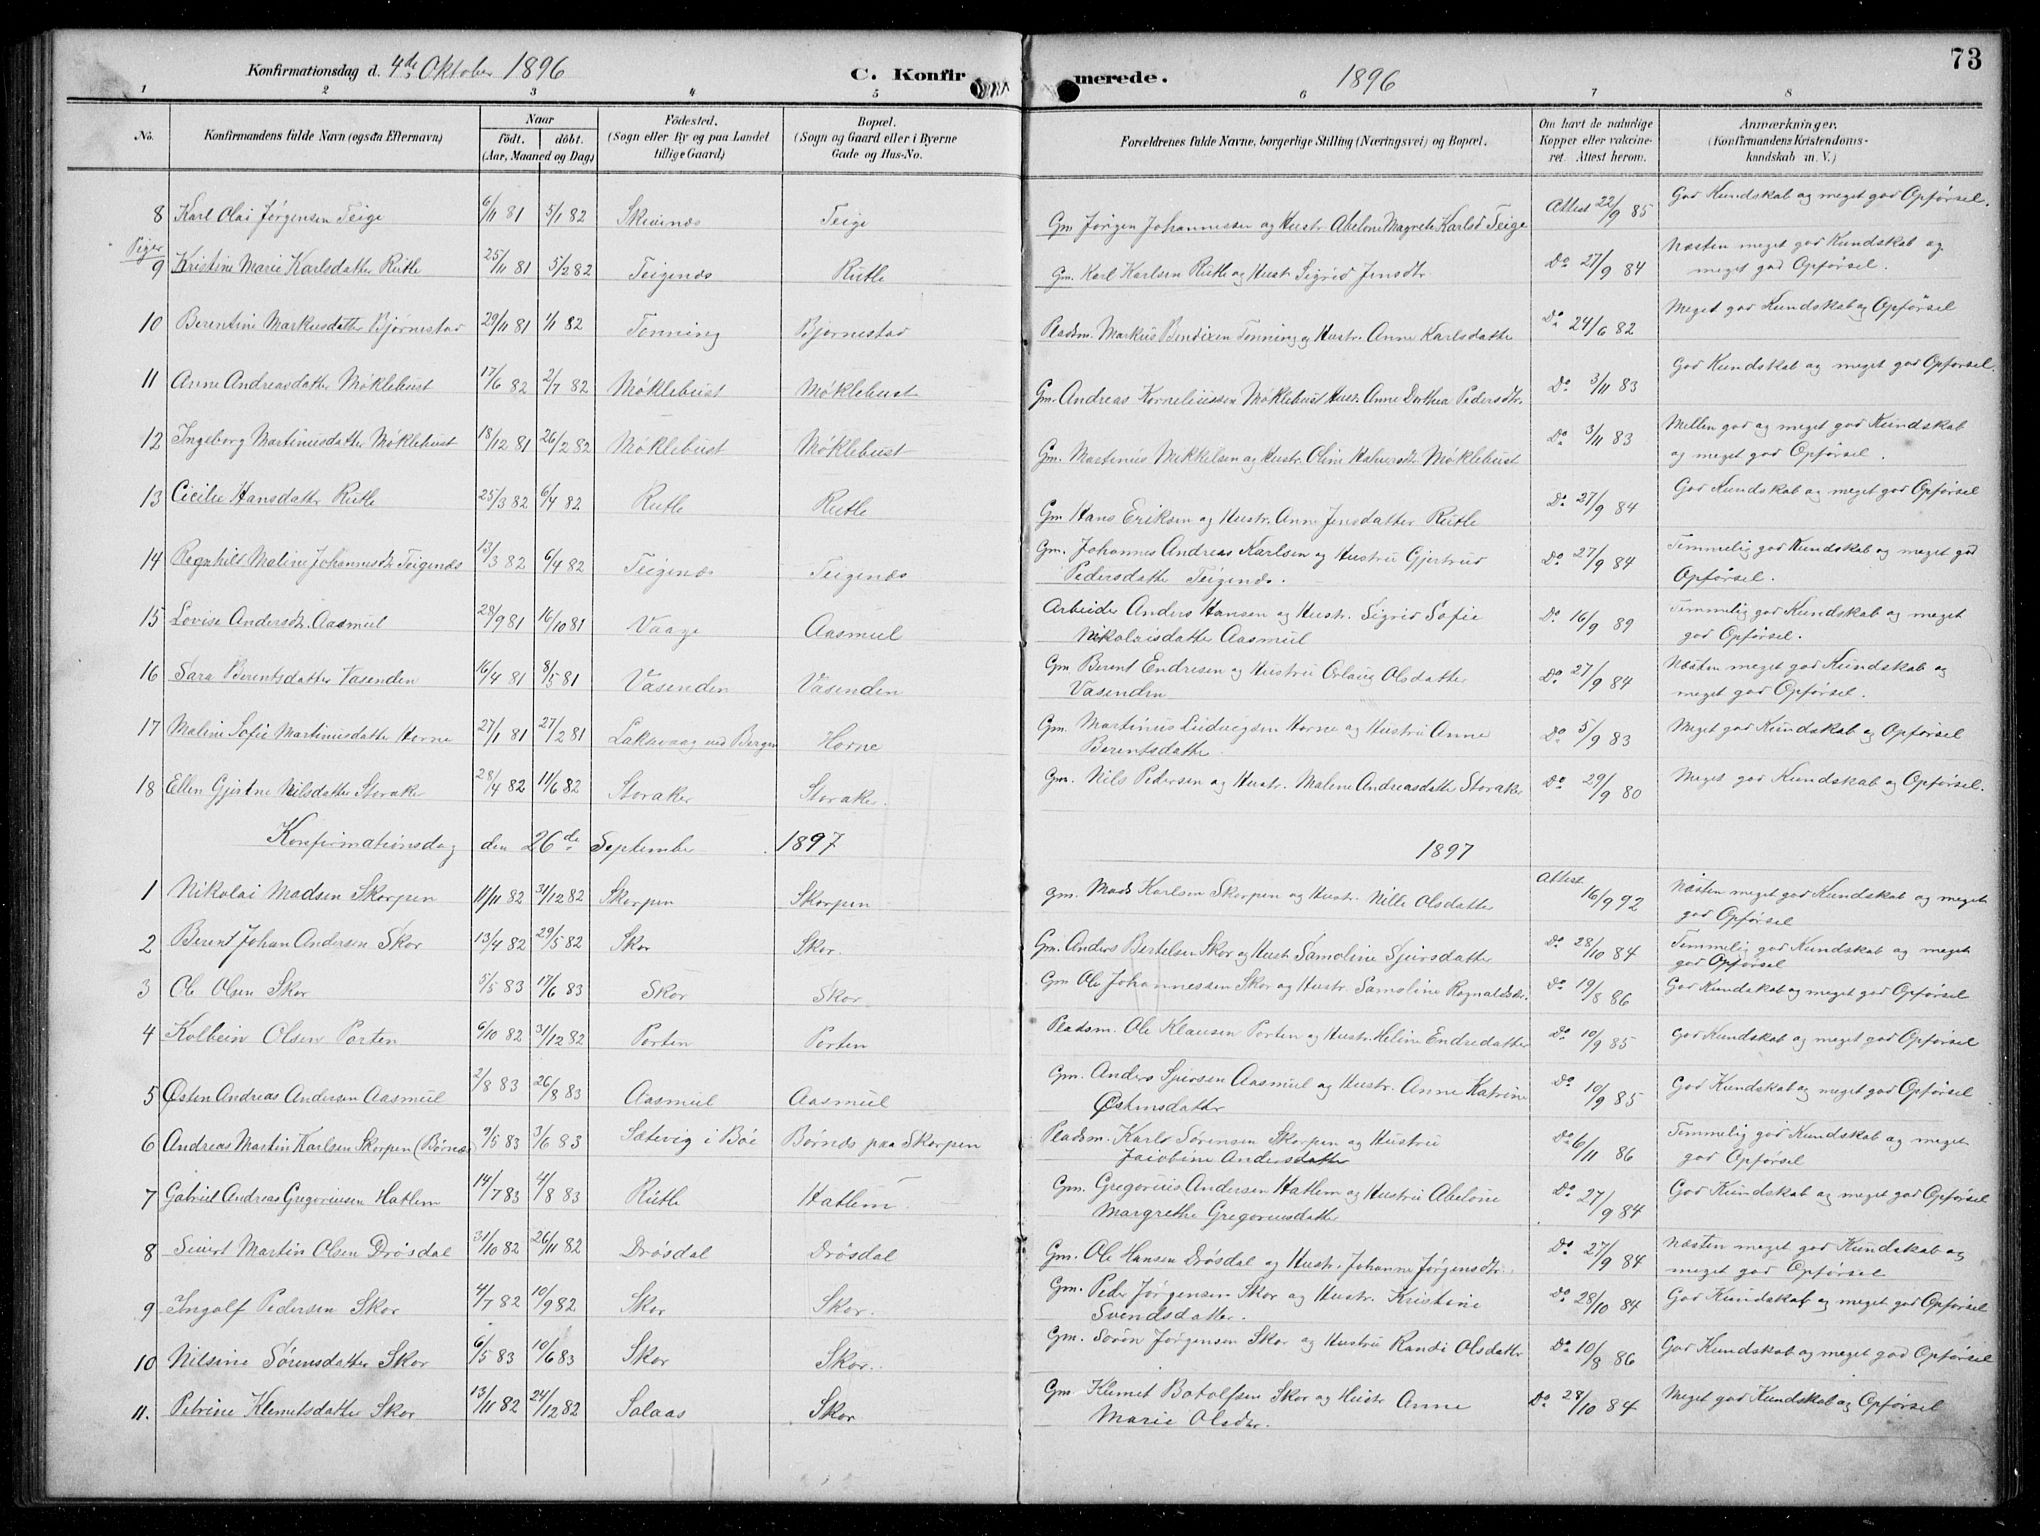 73
Konfirmationsdag d. 4de Oktober 1896 C. Konfirmerede. 1896
1 2 3 4 5 6 7 8
No. Konfirmandens fulde Navn (ogsaa Efternavn) Naar födt. döbt. (Aar, Maaned og Dag) Födested. (Sogn eller By og paa Landet tillige Gaard) Bopæl. (Sogn og Gaard eller i Byerne Gade og Hus-No. Forældrenes fulde Navne, borgerlige Stilling (Næringsvei) og Bopæl. Om havt de naturlige Kopper eller vakcineret. Attest herom. Anmærkninger. (Konfirmandens Kristendomskundskab m. V.)
8 Karl Olai Jørgensen Teige 6/11 81 5/1 82 Skivenæs Teige Gm Jørgen Johannessen og Hustr. Abelone Magrete Karlsd Teige Attest 22/9 85 God Kundskab og meget god Opførsel.
Piger
9 Kristine Marie Karlsdatter Rutle 25/11 81 5/2 82 Teigenæs Rutle Gm. Karl Karlsen Rutle og Hust. Sigrid Jensdtr Do 27/9 84 Næsten meget god Kundskab og
meget god Opførsel.
10 Berentine Markusdatter Bjørnestad 29/11 81 1/1 82 Tonning Bjørnestad Pladsm. Markus Bendixen Tonning og Hustr. Anne Karlsdatter Do 24/6 82 Meget god Kundskab og Opførsel
11 Anne Andreasdatter Møklebust 17/6 82 2/7 82 Møklebust Møklebust Gm. Andreas Korneliussen Møklebust Hustr. Anne Dorthea Pedersdtr. Do 3/11 83 God Kundskab og meget god Opførsel.
12 Ingeborg Martinusdatter Møklebust 18/12 81 26/2 82 Møklebust Møklebust Gm. Martinus Mikkelsen og Hustr. Oline Halversdtr Møklebust Do 3/11 83 Mellen god og meget god Kundskab
og meget god Opførsel.
13 Cicilie Hansdatter Rutle 25/3 82 6/4 82 Rutle Rutle Gm Hans Eriksen og Hustr. Anne Jensdatter Rutle Do 27/9 84 God Kundskab og meget god Opførsel
14 Ragnhild Maline Johannesdtr Teigenæs 13/3 82 6/4 82 Teigenæs Teigenæs Gm. Johannes Andreas Karlsen og Hustru Gjertrud Do 27/9 84 Temmelig god Kundskab og meget god
Pedersdatter Teigenæs. Opførsel.
15 Lovise Andersdtr. Aasmul 28/9 81 16/10 81 Vaage Aasmul Arbeider Anders Hansen og Hustr. Sigrid Sofie Do 16/9 89 Temmelig god Kundskab og meget
Nikolaisdatter Aasmul god Opførsel.
16 Sara Berentsdatter Vasenden 16/4 81 8/5 81 Vasenden Vasenden Gm Berent Endresen og Hustru Orlaug Olsdatter Do 27/9 84 Næsten meget god Kundskab og
Vasenden meget god Opførsel.
17 Maline Sofie Martinusdatter Horne 27/1 81 27/2 81 Laksevaag ved Bergen Horne Gm. Martinus Ludvigsen Horne og Hustru Anne Do 5/9 83 Meget god Kundskab og Opførsel
Berentsdatter.
18 Ellen Gjertne Nilsdatter Storaker 28/4 82 11/6 82 Storaker Storaker. Gm. Nils Pedersen og Hustr. Malene Andreasdatter Storaker Do 29/9 80 Meget god Kundskab og Opførsel.
Konfirmationsdag den 26de September 1897 1897
1 Nikolai Madsen Skorpen 11/11 82 31/12 82 Skorpen Skorpen gm. Mads Karlsen Skorpen og Hustr. Nille Olsdatter Attest 16/9 92 Næsten meget god Kundskab og meget
god Opførsel
2 Berent Johan Andersen Skor 13/4 82 29/5 82 Skor Skor. Gm. Anders Bertelsen Skor og Hustr Samoline Sjursdatter Do 28/10 84 Temmelig god Kundskab og meget
god Opførsel
3 Ole Olsen Skor 5/5 83 17/6 83 Skor Skor Gm Ole Johannessen Skor og Hustr. Samoline Ragnaldsdtr. Do 19/8 86 God Kundskab og meget god Opførsel
4 Kolbein Olsen Porten 6/10 82 31/12 82 Porten Porten Pladsm. Ole Klausen Porten og Hustr. Heline Endredatter Do 10/9 85 God Kundskab og meget god Opførsel
5 Østen Andreas Andersen Aasmul 2/8 83 26/8 83 Aasmul Aasmul Gm. Anders Sjursen Aasmul og Hustr. Anne Katrine Do 10/9 85 God Kundskab og meget god Opførsel
Østensdatter
6 Andreas Martin Karlsen Skorpen (Børnæs) 9/5 83 3/6 83 Sætevig i Böe Børnæs paa Skorpen Pladsm. Karl Sørensen Skorpen og Hustru Do 6/11 86 Temmelig god Kundskab og meget
Jaiobine Andersdatter god Opførsel
7 Gabriel Andreas Gregoriusen Hatlem 14/7 83 4/8 83 Rutle Hatlem. Gm. Gregorius Andersen Hatlem og Hustru Abelone Do 27/9 84 God Kundskab og meget god Opførsel
Margrethe Gregoriusdatter
8 Sivert Martin Olsen Drösdal 31/10 82 26/11 82 Drösdal Drösdal Gm. Ole Hansen Drösdal og Hustr. Johanne Jørgensdtr. Do 27/9 84 Næsten meget god Kundskab og
meget god Opførsel
9 Ingolf Pedersen Skor 4/7 82 10/9 82 Skor Skor. Gm. Peder Jørgensen Skor og Hustr. Kristine Do 28/10 84 God Kundskab og meget god Opførsel
Svendsdatter.
10 Nilsine Sørensdatter Skor 6/5 83 10/6 83 Skor Skor. Gm. Sørøn Jørgensen Skor og Hustru Randi Olsdatter Do 10/8 86 God Kundskab og meget god Opførsel
11. Petrine Klemetsdatter Skor 13/11 82 24/12 82 Salaas Skor Gm Klemet Botolfsen Skor og Hustr Anne Do 28/10 84 Meget god Kundskab og Opførsel
Marie Olsdtr.